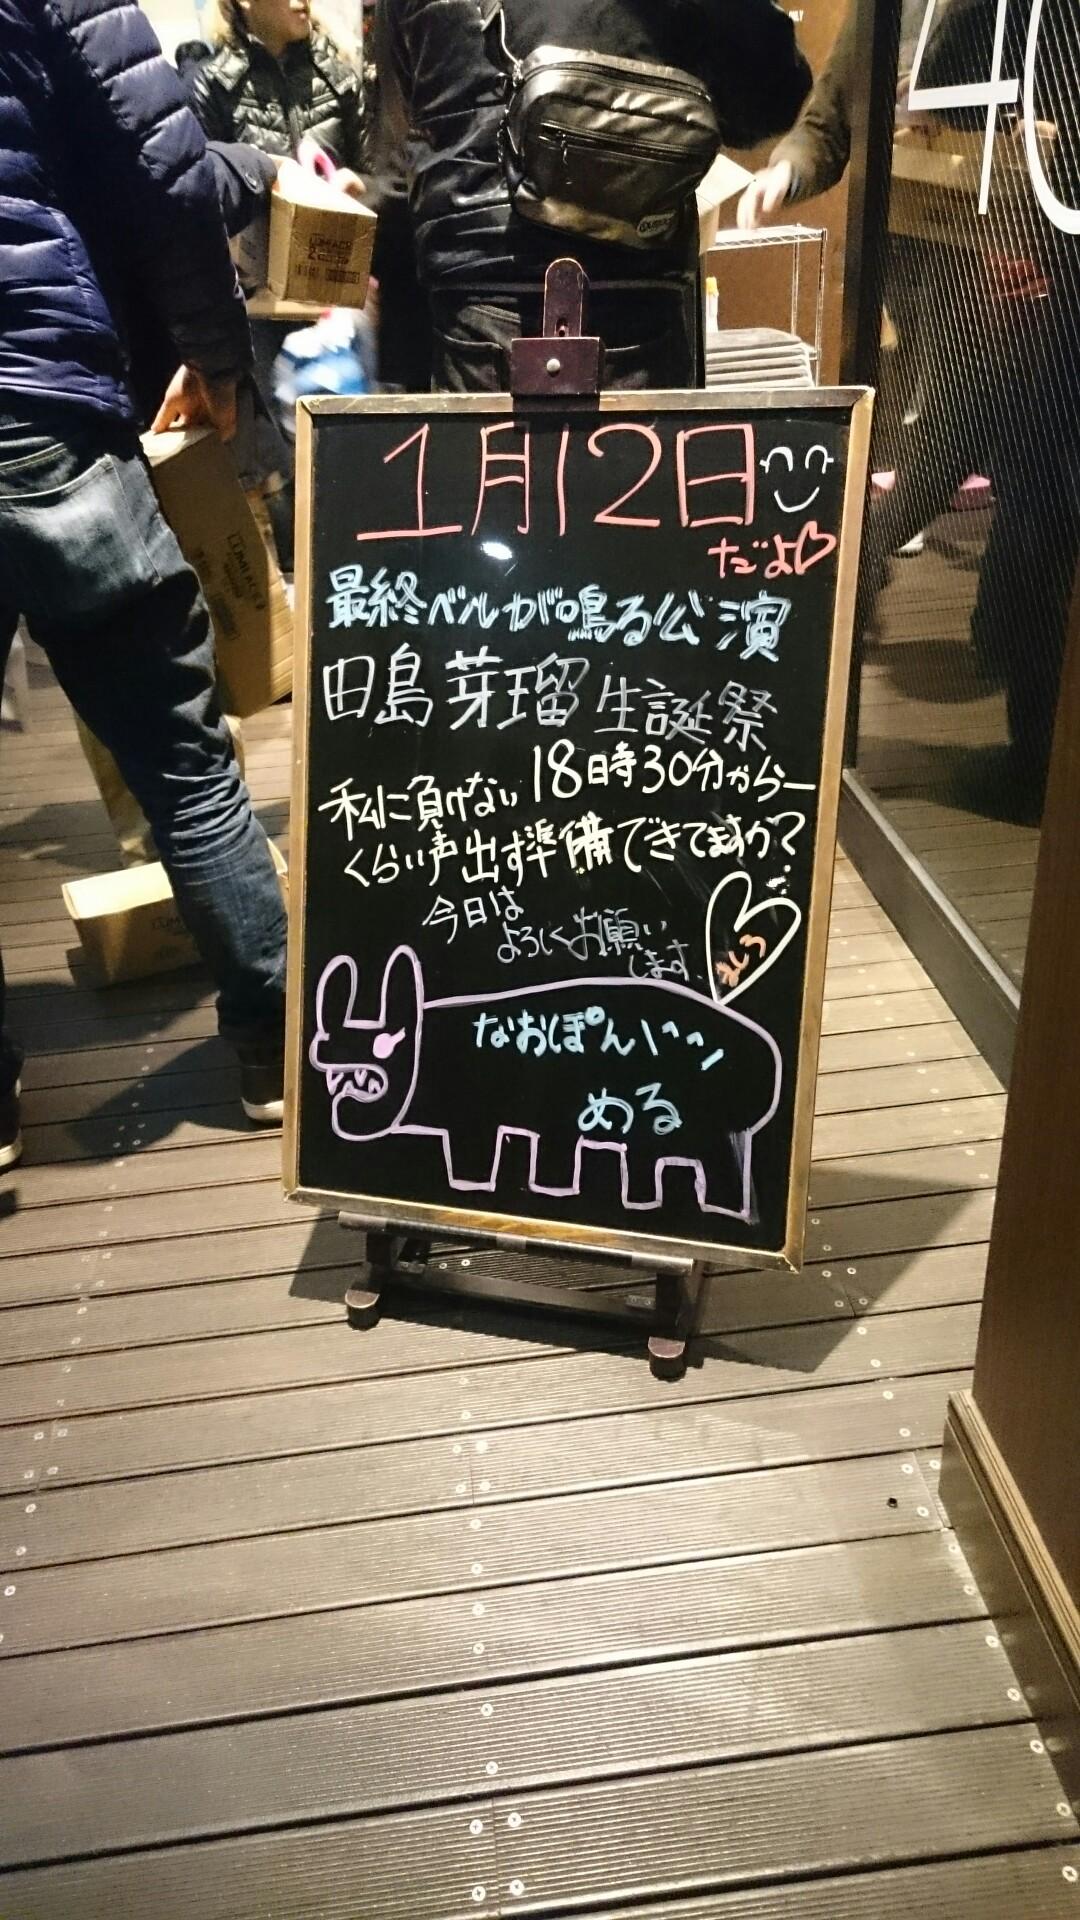 40
LUMIACE
2
OUTDOOR
1月12日
だよ♡
最終ベルが鳴る公演
田島芽瑠 生誕祭
18時30分から
私に負けない
くらい声出す準備できてますか?
今日は
よろしくお願い
します
ましろ
なおぽん
める